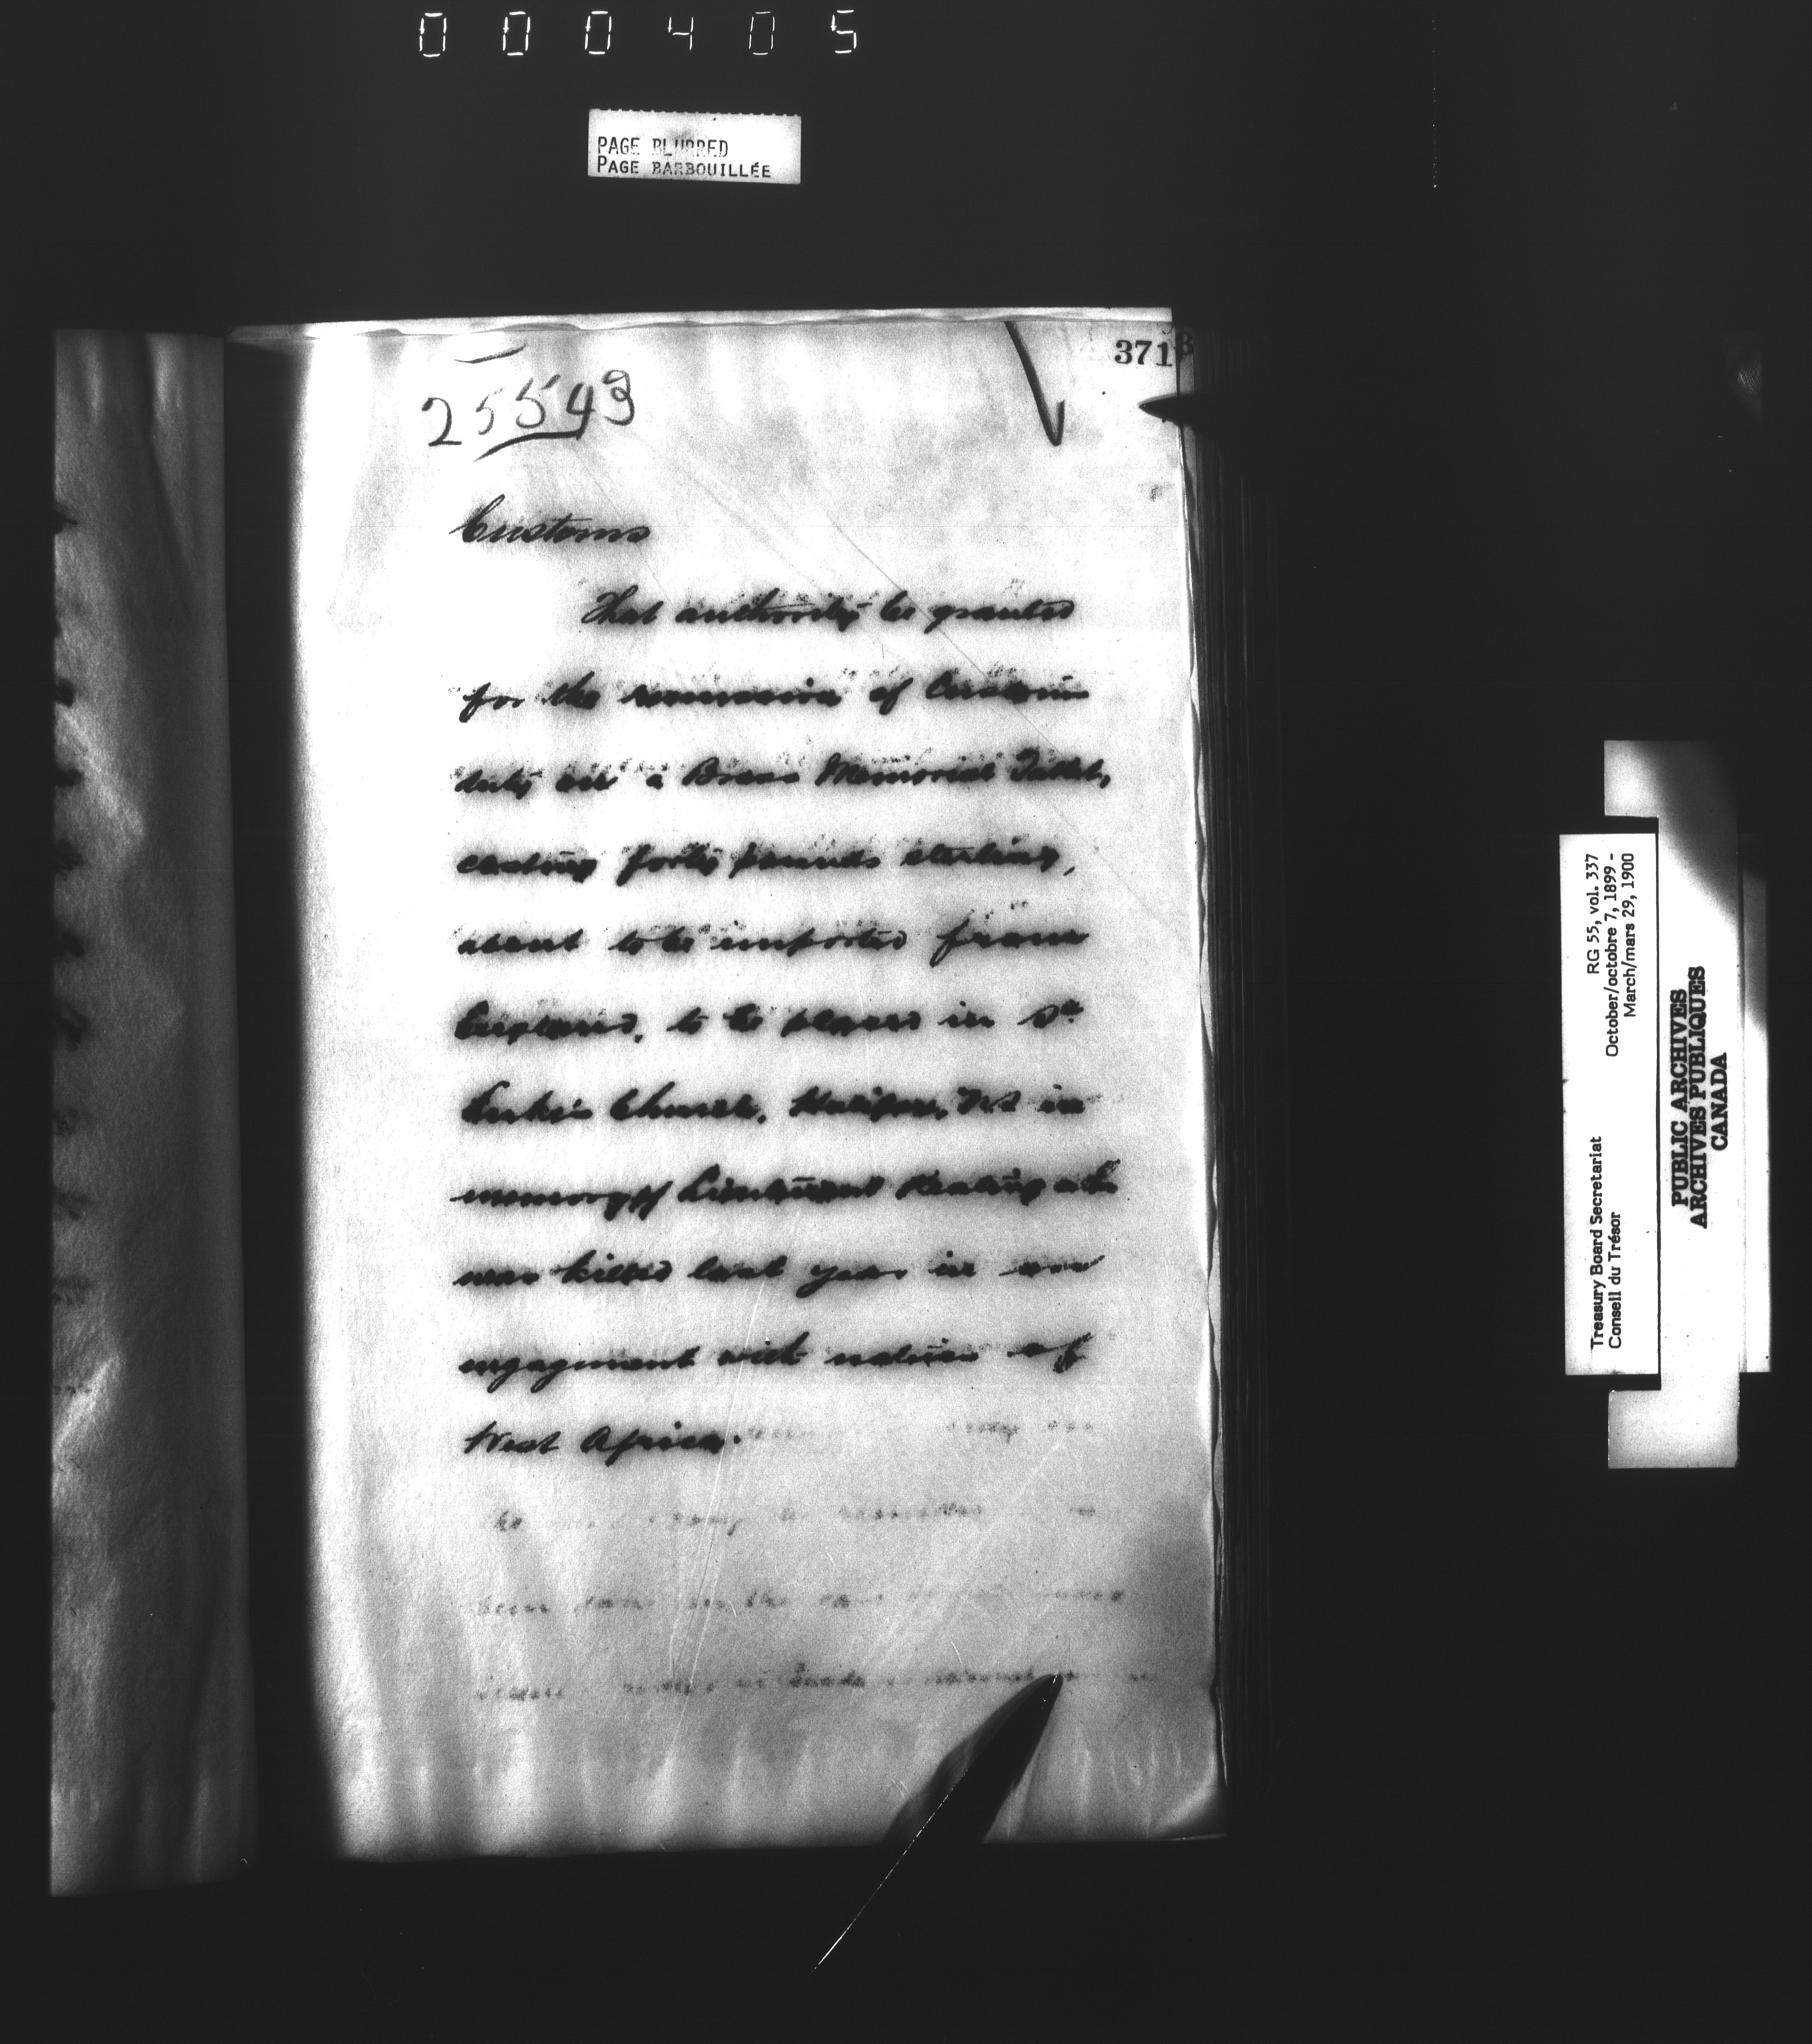 000405
PAGE BLURRED
PAGE BARBOUILLÉE
371
25543
Customs
That authority be granted
for the remission of Customs
duty on a Brass Memorial Tablet,
costing forty pounds sterling,
about to be imported from
England, to be placed in St
Luke's Church, Halifax, NS in
memory of Lieutenant Keating who
was killed last year in an
engagement with natives of
West Africa.
RG 55, vol. 337
October/octobre 7, 1899 -
March/mars 29, 1900
Treasury Board Secretariat
Conseil du Trésor
PUBLIC ARCHIVES
ARCHIVES PUBLIQUES
CANADA